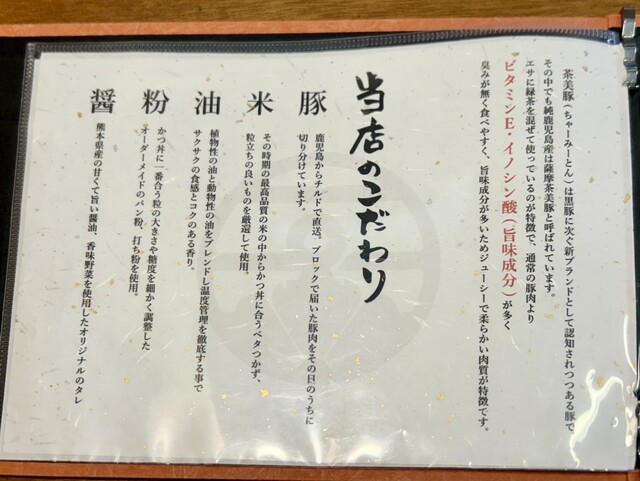 茶美豚(ちゃーみーとん)は黒豚に次ぐ新ブランドとして認知されつつある豚で
その中でも純鹿児島産は薩摩茶美豚と呼ばれています。
エサに緑茶を混ぜて使っているのが特徴で、通常の豚肉より
ビタミンE・イノシン酸(旨味成分)が多く
臭みが無く食べやすく、旨味成分が多いためジューシーで柔らかい肉質が特徴です。
当店のこだわり
豚
鹿児島からチルドで直送。ブロックで届いた豚肉をその日のうちに
切り分けています。
米
その時期の最高品質の米の中からかつ丼に合うベタつかず、
粒立ちの良いものを厳選して使用。
油
植物性の油と動物性の油をブレンドし温度管理を徹底する事で
サクサクの食感とコクのある香り。
粉
かつ丼に一番合う粒の大きさや糖度を細かく調整した
オーダーメイドのパン粉、打ち粉を使用。
醤
熊本県産の甘くて旨い醤油、香味野菜を使用したオリジナルのタレ